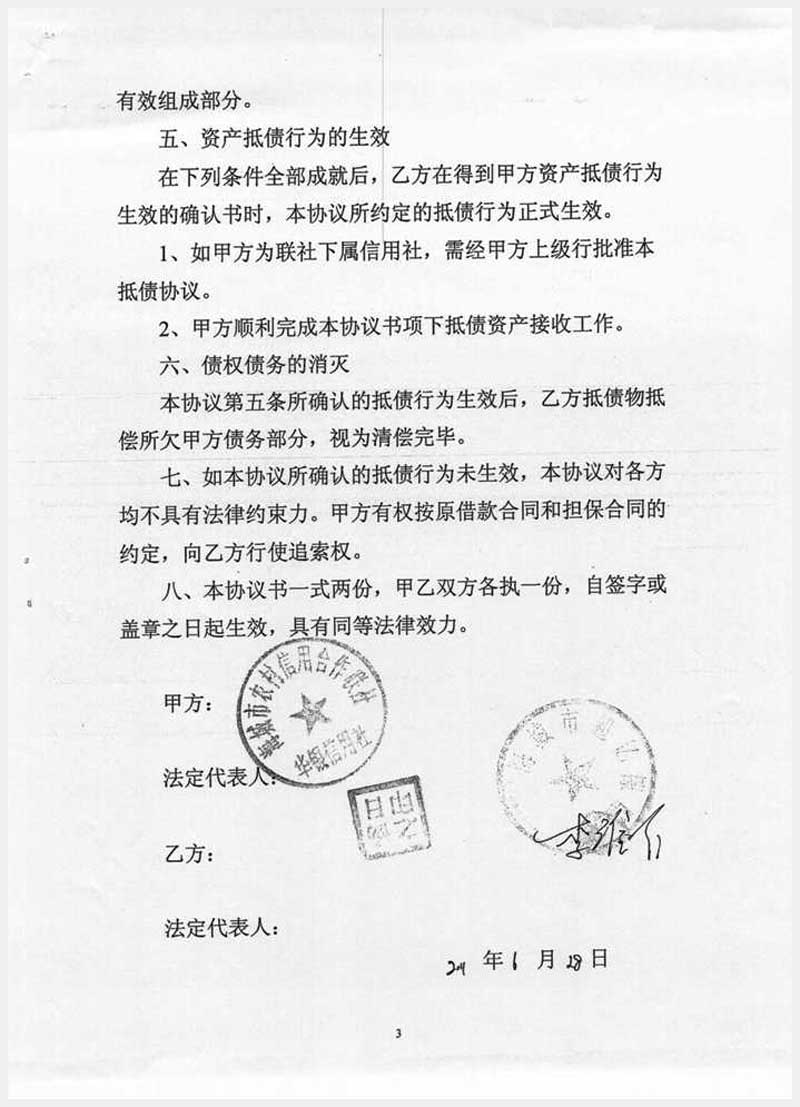 有效组成部分。
五、资产抵债行为的生效
在下列条件全部成就后，乙方在得到甲方资产抵债行为
生效的确认书时，本协议所约定的抵债行为正式生效。
1、如甲方为联社下属信用社，需经甲方上级行批准本
抵债协议。
2、甲方顺利完成本协议书项下抵债资产接收工作。
六、债权债务的消灭
本协议第五条所确认的抵债行为生效后，乙方抵债物抵
偿所欠甲方债务部分，视为清偿完毕。
七、如本协议所确认的抵债行为未生效，本协议对各方
均不具有法律约束力。甲方有权按原借款合同和担保合同的
约定，向乙方行使追索权。
八、本协议书一式两份，甲乙双方各执一份，自签字或
盖章之日起生效，具有同等法律效力。
甲方：
城市农村信用合作联社
信用社
法定代表人：
之印
城市
乙方：
李
法定代表人：
年6月28日
3